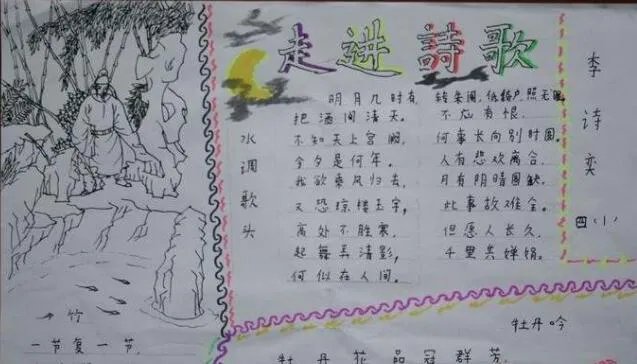 走进詩歌
水调歌头
明月几时有
把酒问清天。
不知天上宫阙,
今夕是何年。
我欲乘风归去,
又恐琼楼玉宇,
高处不胜寒,
起舞弄清影,
何似在人间。
转朱阁,低绮户,照无眠
不应有恨,
何事长向别时圆。
人有悲欢离合,
月有阴晴圆缺,
此事故难全。
但愿人长久,
千里共婵娟。
李诗奕
四(1)
竹
一节复一节,
牡丹吟
牡丹花品冠群芳